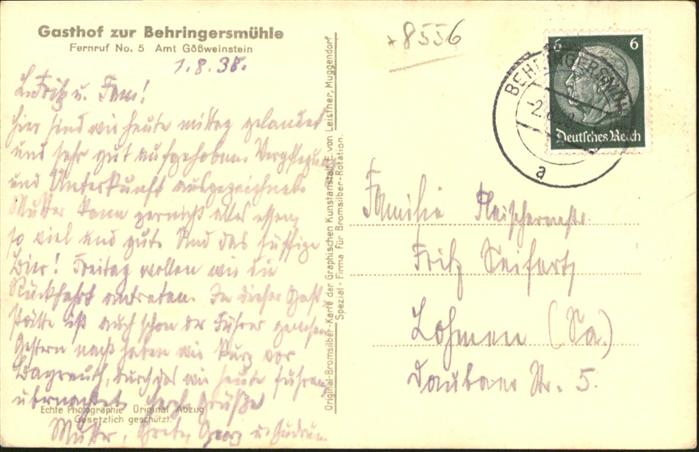 Gasthof zur Behringersmühle
Fernruf No. 5 Amt Gößweinstein
1.8.38.
L. Fritz u. Fam!
Hier sind wir heute mittag gelandet
und sehr gut aufgehoben. Verpflegung
und Unterkunft ausgezeichnet.
Mutter kann garnicht alles essen,
so viel und gut. Und das süffige
Bier! Freitag wollen wir die
Rückfahrt antreten. In dieser Gast-
stätte ist auch schon der Führer gewesen.
Gestern nacht haben wir kurz vor
Bayreuth, durch das wir heute fuhren,
übernachtet. Herzl. Grüße
Mutter, Grete, Georg u. Gudrun
Echte Photographie Original Abzug
Gesetzlich geschützt.
Original-Bromsilber-Karte der Graphischen Kunstanstalt F. von Leistner, Muggendorf
Spezial-Firma für Bromsilber-Rotation.
*8556
BEHRINGERSMÜHLE
a
6 6
Deutsches Reich
Familie Fleischermstr.
Fritz Seifert,
Lohmen (Sa.)
Daubaer Str. 5.